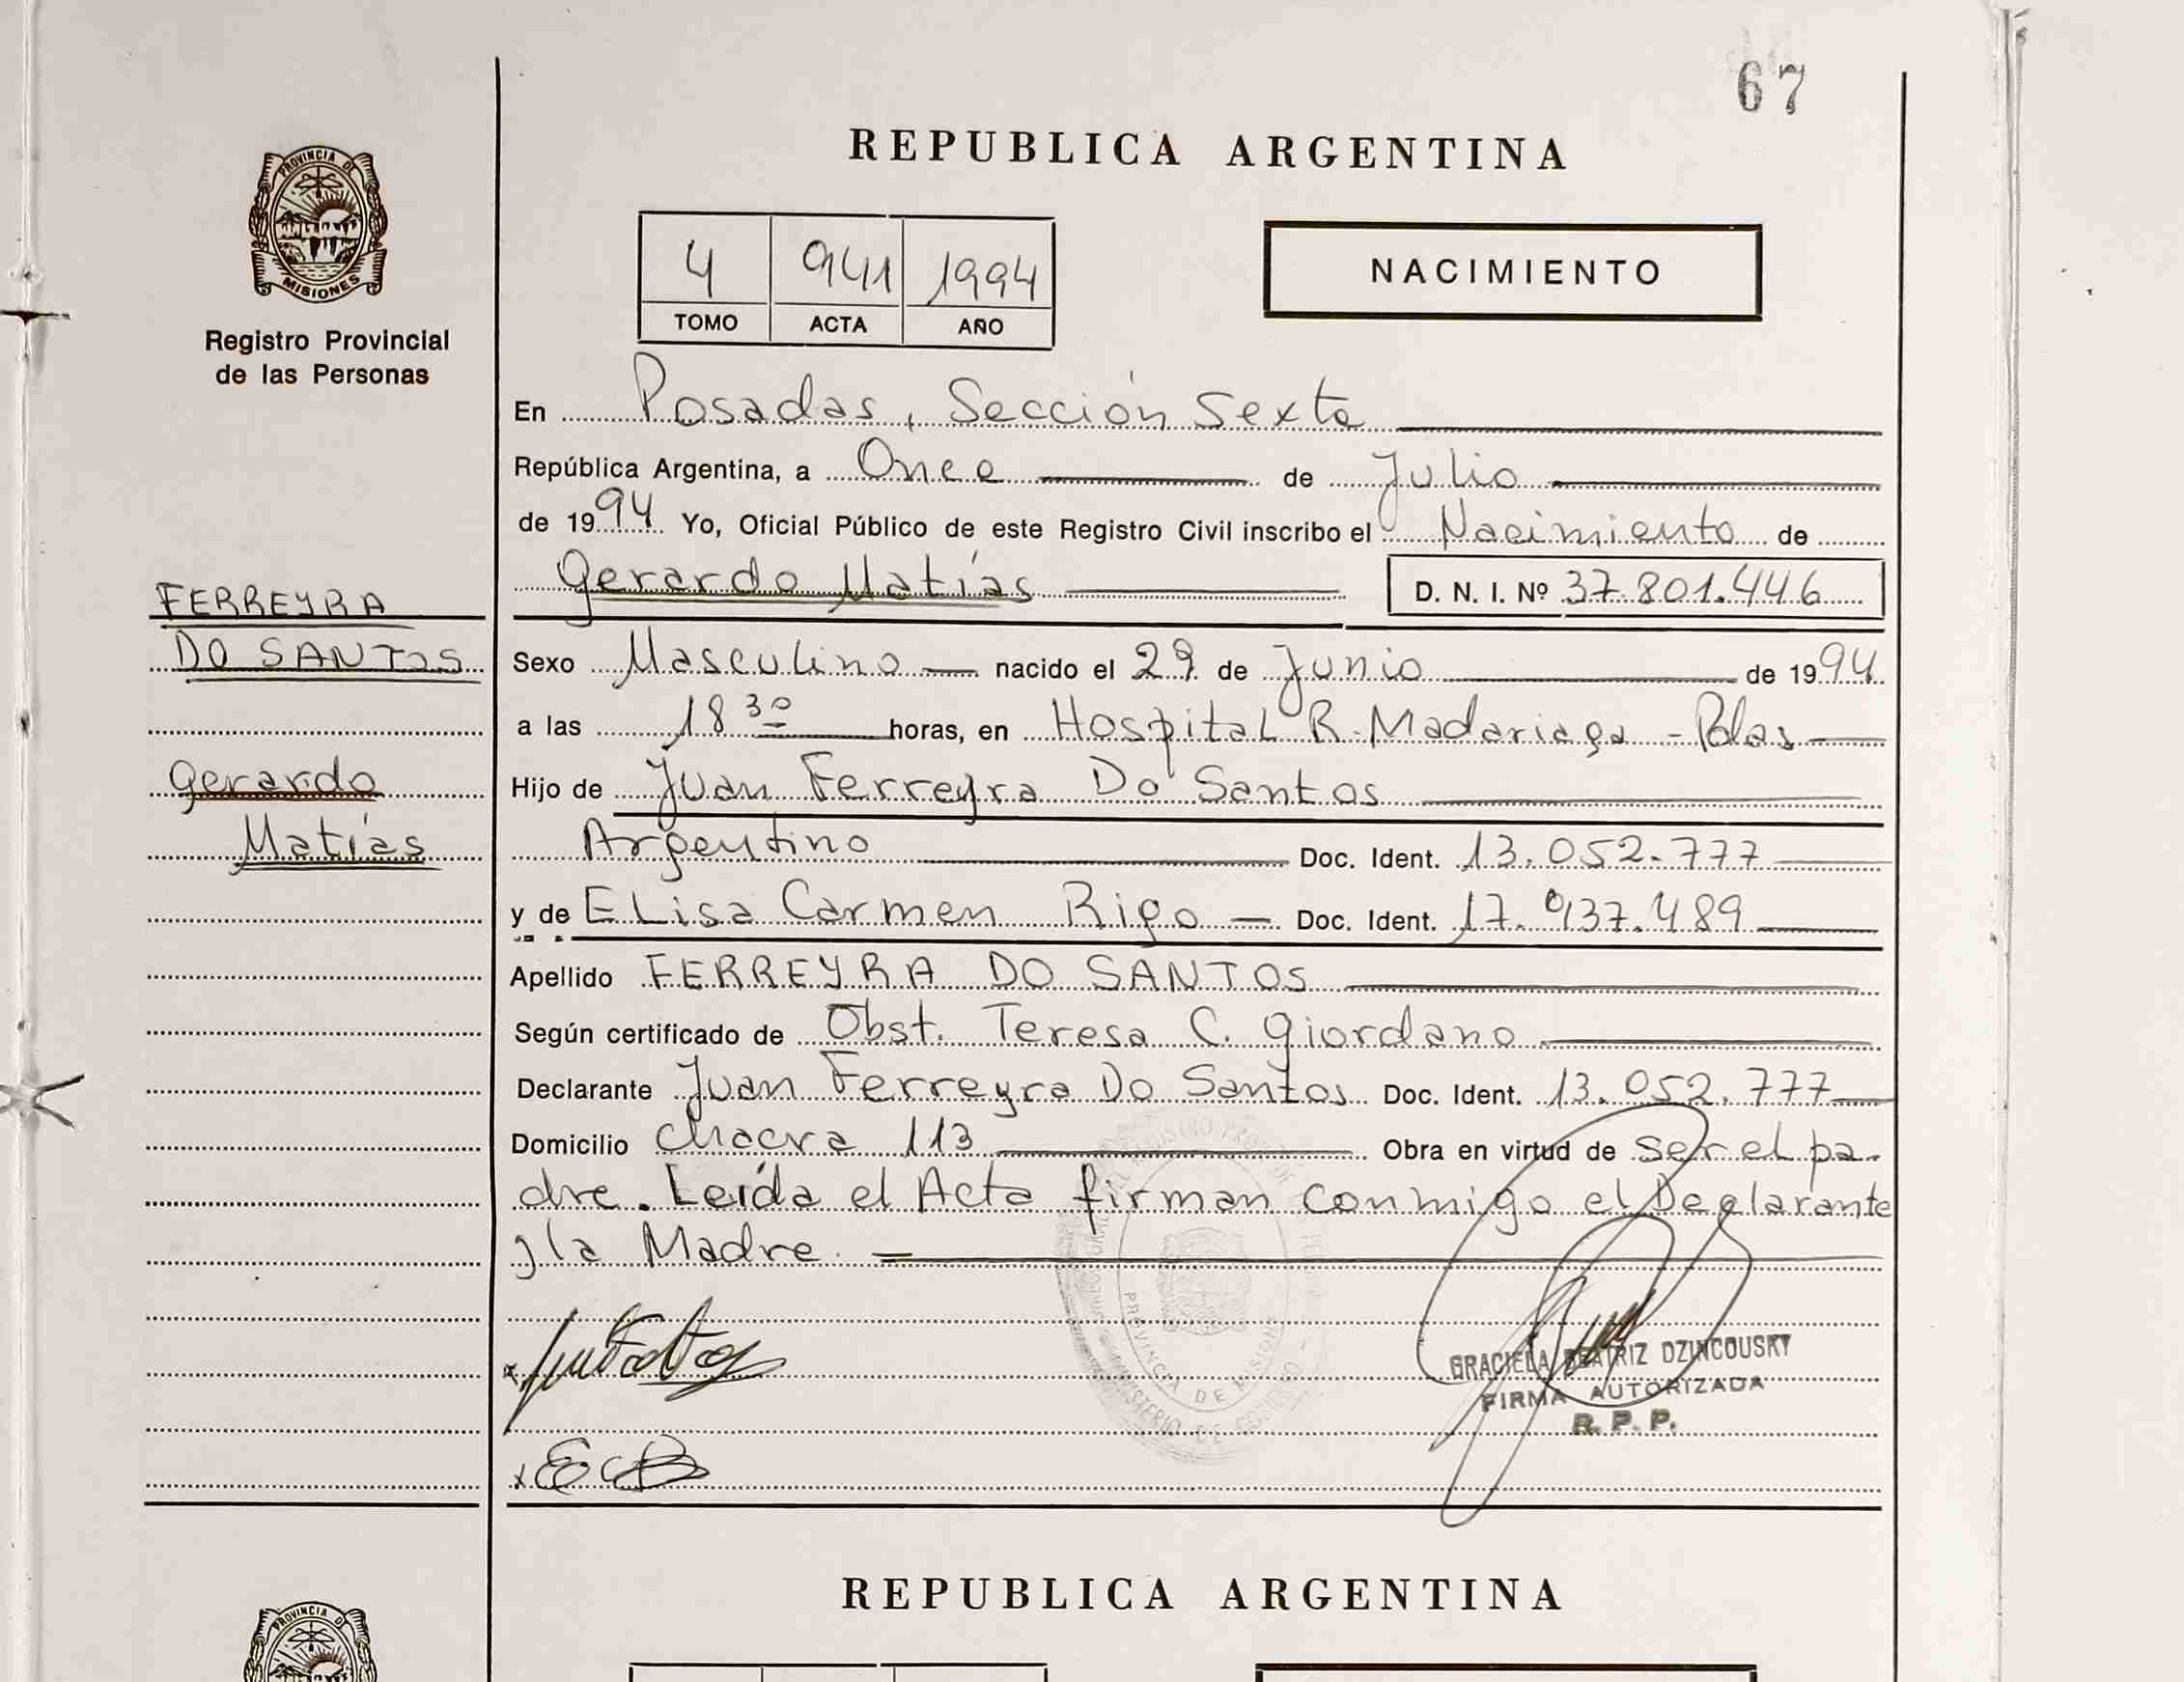 67
REPUBLICA ARGENTINA
PROVINCIA DE
MISIONES
Registro Provincial
de las Personas
4 941 1994
TOMO ACTA AÑO
NACIMIENTO
En Posadas, Sección Sexta
República Argentina, a Once de Julio
de 1994 Yo, Oficial Público de este Registro Civil inscribo el Nacimiento de
Gerardo Matías D. N. I. Nº 37.801.446
FERREYRA
DO SANTOS
Gerardo
Matías
Sexo Masculino nacido el 29 de Junio de 1994
a las 18 30 horas, en Hospital R. Madariaga - Pdas
Hijo de Juan Ferreyra Do Santos
Argentino Doc. Ident. 13.052.777
y de Elisa Carmen Rigo Doc. Ident. 17.937.489
Apellido FERREYRA DO SANTOS
Según certificado de Obst. Teresa C. Giordano
Declarante Juan Ferreyra Do Santos Doc. Ident. 13.052.777
Domicilio Chacra 113 Obra en virtud de ser el pa-
dre. Leída el Acta firman conmigo el Declarante
y la Madre.
PROVINCIA DE MISIONES
MINISTERIO DE GOBIERNO
GRACIELA BEATRIZ DZINCOUSKY
FIRMA AUTORIZADA
R. P. P.
REPUBLICA ARGENTINA
PROVINCIA DE